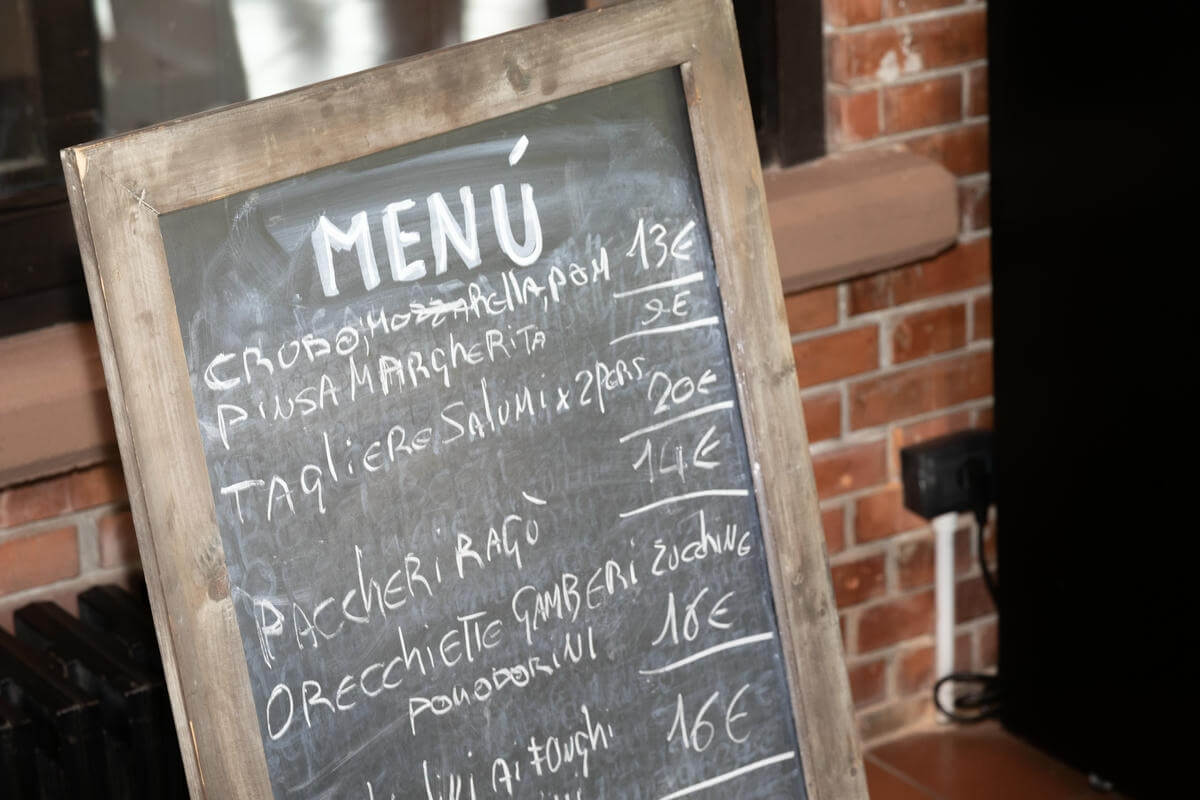 MENÚ
CRUDO, MOZZARELLA, POM 13€
PINSA MARGHERITA 9€
TAGLIERE SALUMI x 2 PERS 20€
14€
PACCHERI RAGÙ
ORECCHIETTE GAMBERI ZUCCHINE
POMODORINI 16€
AI FUNGHI 16€